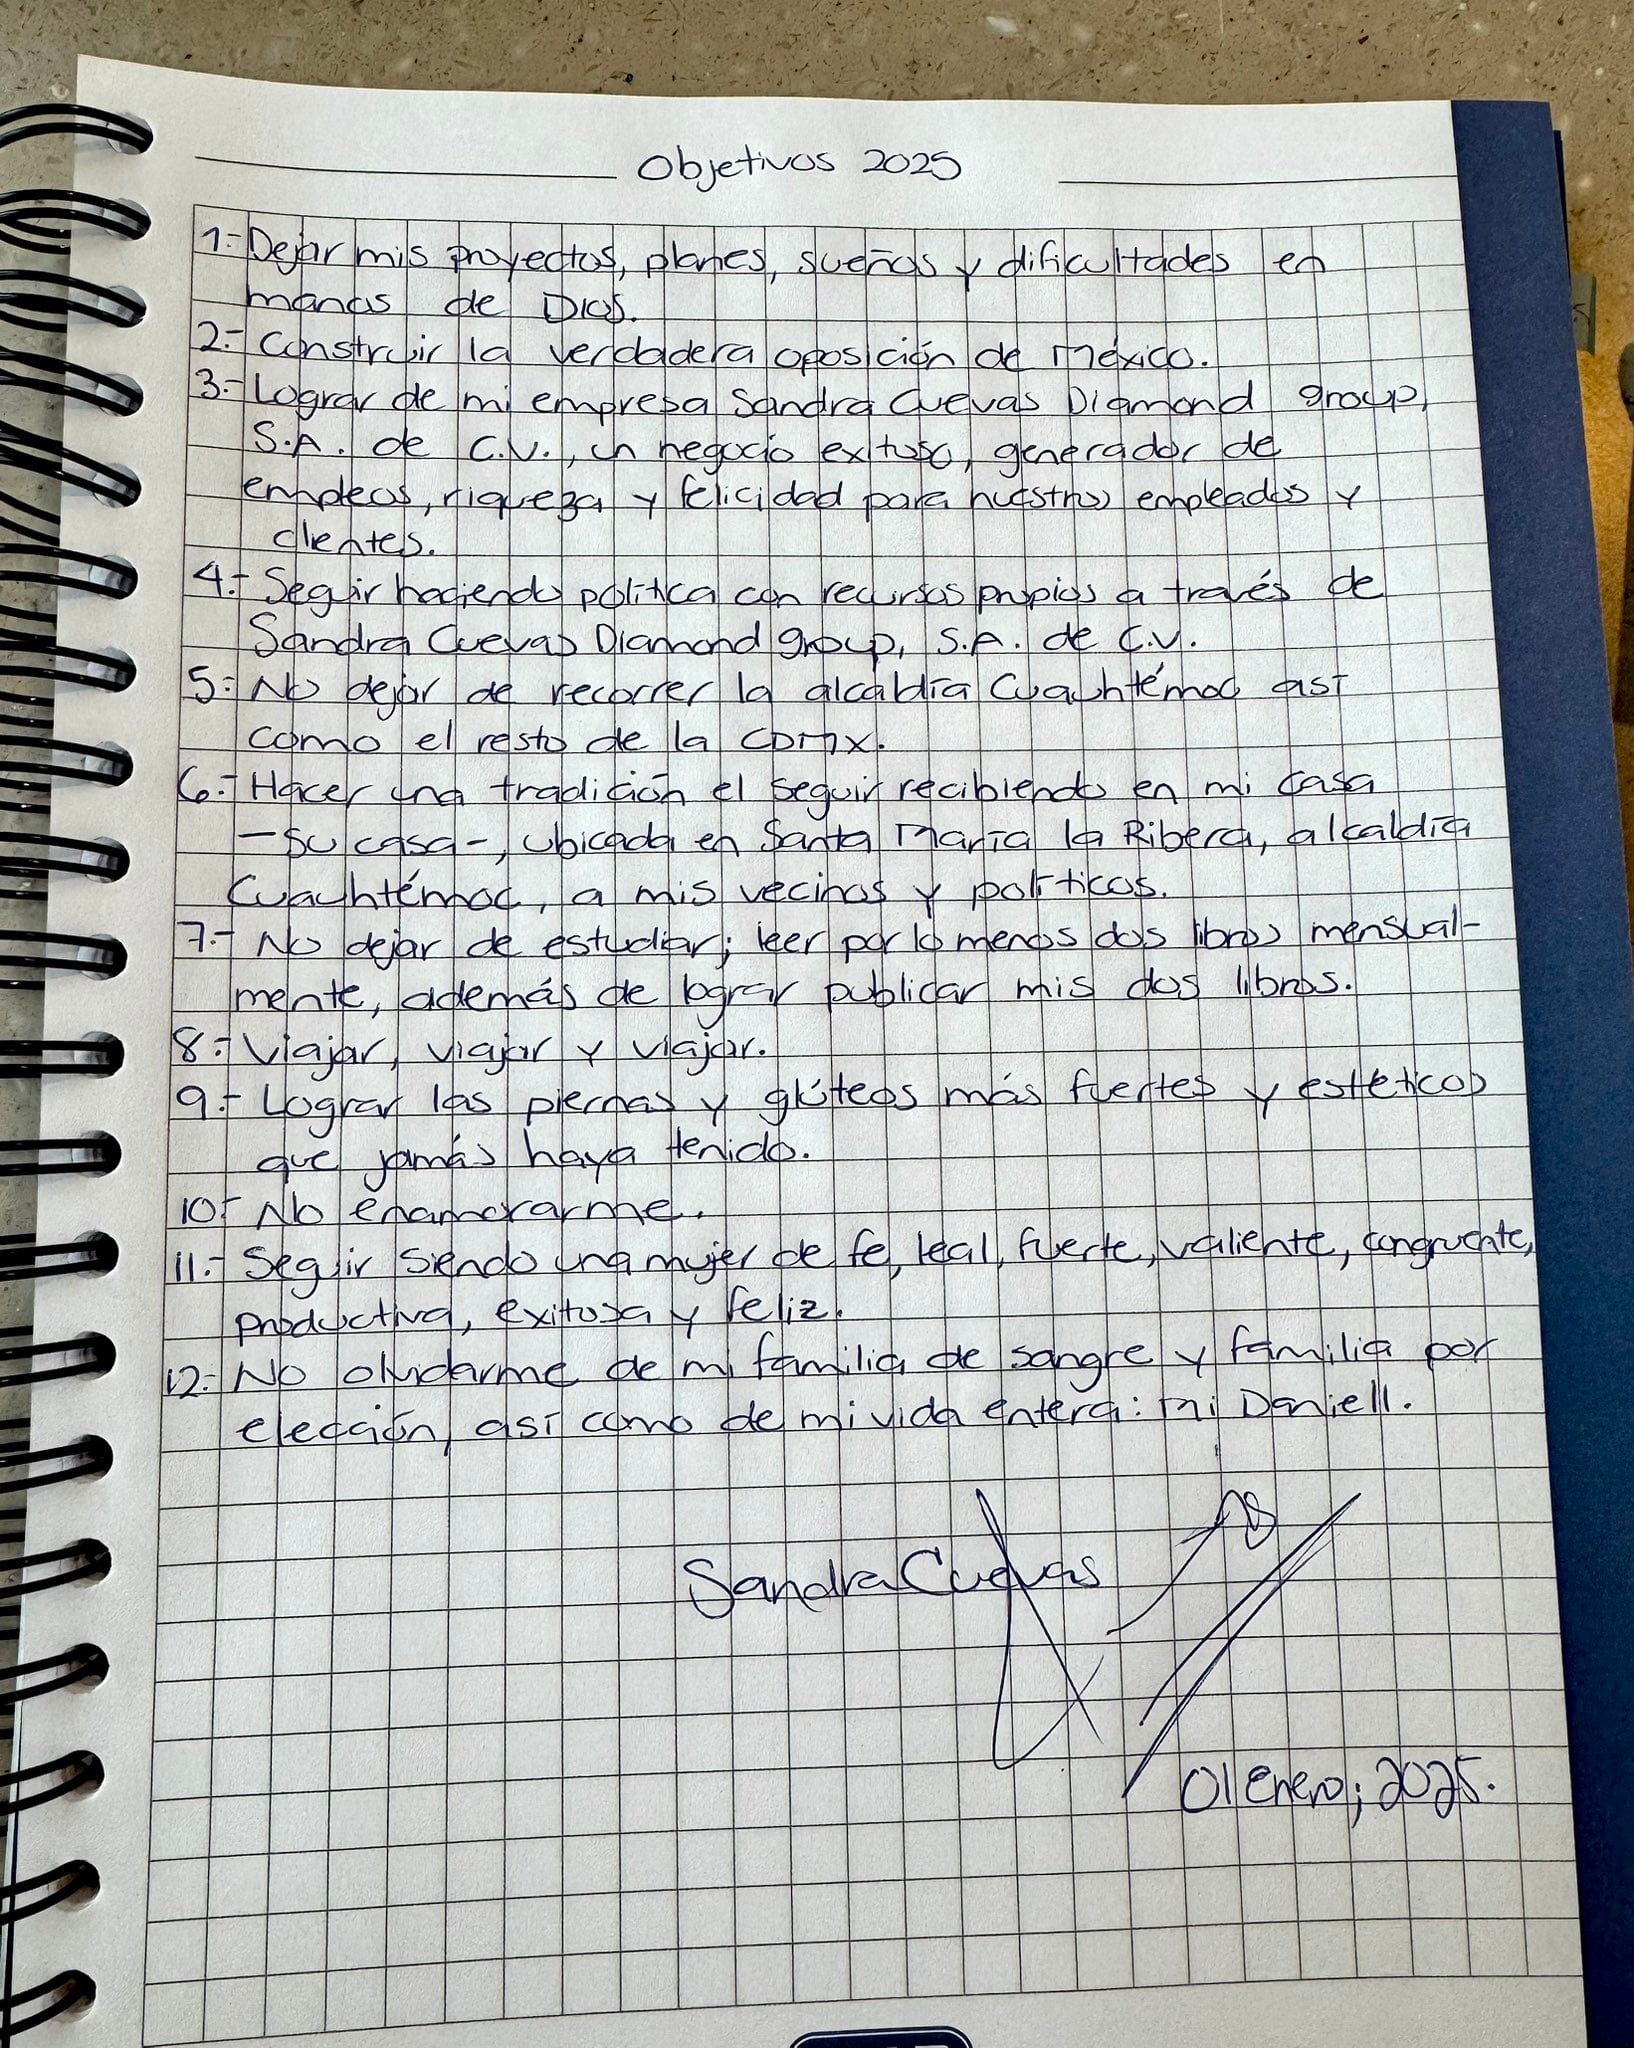 Objetivos 2025
1.- Dejar mis proyectos, planes, sueños y dificultades en
manos de Dios.
2.- Construir la verdadera oposición de México.
3.- Lograr de mi empresa Sandra Cuevas Diamond group,
S.A. de C.V., un negocio exitoso, generador de
empleos, riqueza y felicidad para nuestros empleados y
clientes.
4.- Seguir haciendo política con recursos propios a través de
Sandra Cuevas Diamond group, S.A. de C.V.
5.- No dejar de recorrer la alcaldía Cuauhtémoc así
como el resto de la CDMX.
6.- Hacer una tradición el seguir recibiendo en mi casa
-su casa-, ubicada en Santa María la Ribera, alcaldía
Cuauhtémoc, a mis vecinos y políticos.
7.- No dejar de estudiar; leer por lo menos dos libros mensual-
mente, además de lograr publicar mis dos libros.
8.- Viajar, viajar y viajar.
9.- Lograr las piernas y glúteos más fuertes y estéticos
que jamás haya tenido.
10.- No enamorarme.
11.- Seguir siendo una mujer de fe, leal, fuerte, valiente, congruente,
productiva, exitosa y feliz.
12.- No olvidarme de mi familia de sangre y familia por
elección, así como de mi vida entera: mi Daniell.
Sandra Cuevas
01 Enero; 2025.